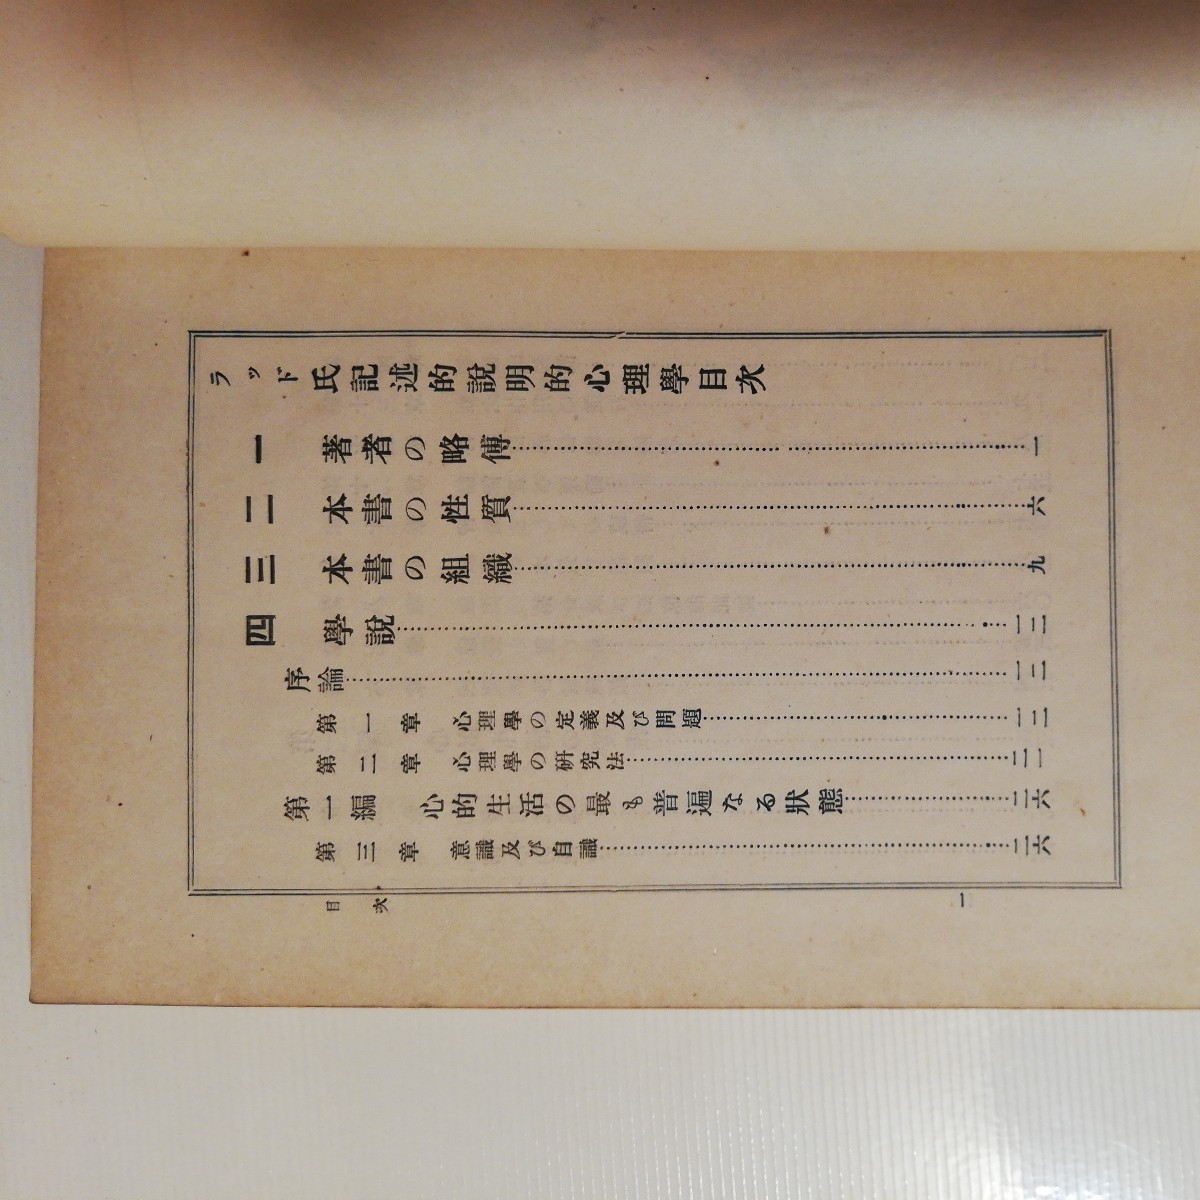 ラッド氏記述的說明的心理學目次
一 著者の略傳……一
二 本書の性質……六
三 本書の組織……九
四 學說……一二
序論……一二
第一章 心理學の定義及び問題……一二
第二章 心理學の研究法……二一
第一編 心的生活の最も普遍なる狀態……二六
第三章 意識及び自識……二六
目次
一